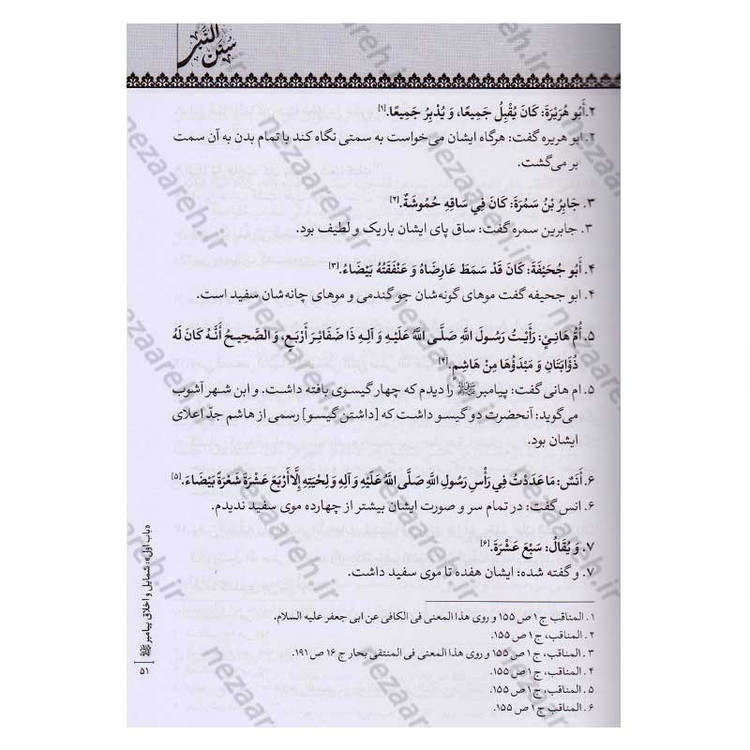 سنن النبی
۲. أَبُو هُرَيْرَةَ: كَانَ يُقْبِلُ جَمِيعًا، وَ يُدْبِرُ جَمِيعًا.[۱]
۲. ابو هریره گفت: هرگاه ایشان می‌خواست به سمتی نگاه کند با تمام بدن به آن سمت
بر می‌گشت.
۳. جَابِرُ بْنُ سَمُرَةَ: كَانَ فِي سَاقِهِ حُمُوشَةٌ.[۲]
۳. جابربن سمره گفت: ساق پای ایشان باریک و لطیف بود.
۴. أَبُو جُحَيْفَةَ: كَانَ قَدْ سَمَطَ عَارِضَاهُ وَ عَنْفَقَتُهُ بَيْضَاءُ.[۳]
۴. ابو جحیفه گفت موهای گونه‌شان جو گندمی و موهای چانه‌شان سفید است.
۵. أُمُّ هَانِئٍ: رَأَيْتُ رَسُولَ اللَّهِ صَلَّى اللَّهُ عَلَيْهِ وَ آلِهِ ذَا ضَفَائِرَ أَرْبَعٍ، وَ الصَّحِيحُ أَنَّهُ كَانَ لَهُ
ذُؤَابَتَانِ وَ مَبْدَؤُهَا مِنْ هَاشِمٍ.[۴]
۵. ام هانی گفت: پیامبر ﷺ را دیدم که چهار گیسوی بافته داشت. و ابن شهر آشوب
می‌گوید: آنحضرت دو گیسو داشت که [داشتن گیسو] رسمی از هاشم جدّ اعلای
ایشان بود.
۶. أَنَسٌ: مَا عَدَدْتُ فِي رَأْسِ رَسُولِ اللَّهِ صَلَّى اللَّهُ عَلَيْهِ وَ آلِهِ وَ لِحْيَتِهِ إِلَّا أَرْبَعَ عَشْرَةَ شَعْرَةً بَيْضَاءَ.[۵]
۶. انس گفت: در تمام سر و صورت ایشان بیشتر از چهارده موی سفید ندیدم.
۷. وَ يُقَالُ: سَبْعَ عَشْرَةَ.[۶]
۷. و گفته شده: ایشان هفده تا موی سفید داشت.
۱. المناقب ج ۱ ص ۱۵۵ و روی هذا المعنی فی الکافی عن ابی جعفر علیه السلام.
۲. المناقب، ج ۱ ص ۱۵۵.
۳. المناقب، ج ۱ ص ۱۵۵ و روی هذا المعنی فی المنتقی بحار ج ۱۶ ص ۱۹۱.
۴. المناقب، ج ۱ ص ۱۵۵.
۵. المناقب، ج ۱ ص ۱۵۵.
۶. المناقب، ج ۱ ص ۱۵۵.
«باب اول»: شمایل و اخلاق پیامبر ﷺ
۵۱
nezaareh.ir